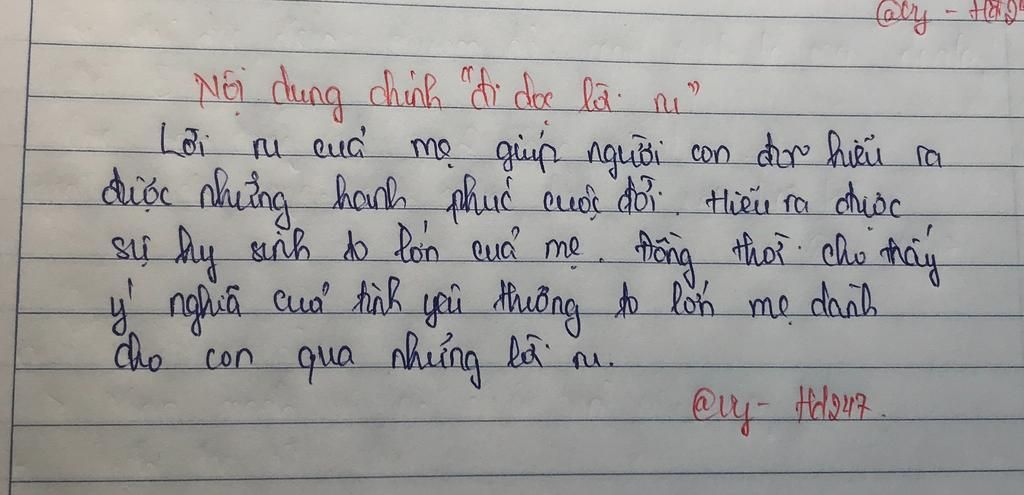 @vy - Hd24
Nội dung chính "đi dọc lời ru"
Lời ru cuả mẹ giúp người con đơn hiểu ra
được những hanh phúc cuộc đời. Hiểu ra được
sự hy sinh to lớn cuả mẹ. Đồng thời cho thấy
ý nghiã cuả tình yêu thương to lớn mẹ danh
cho con qua những lời ru.
@vy - Hd247.